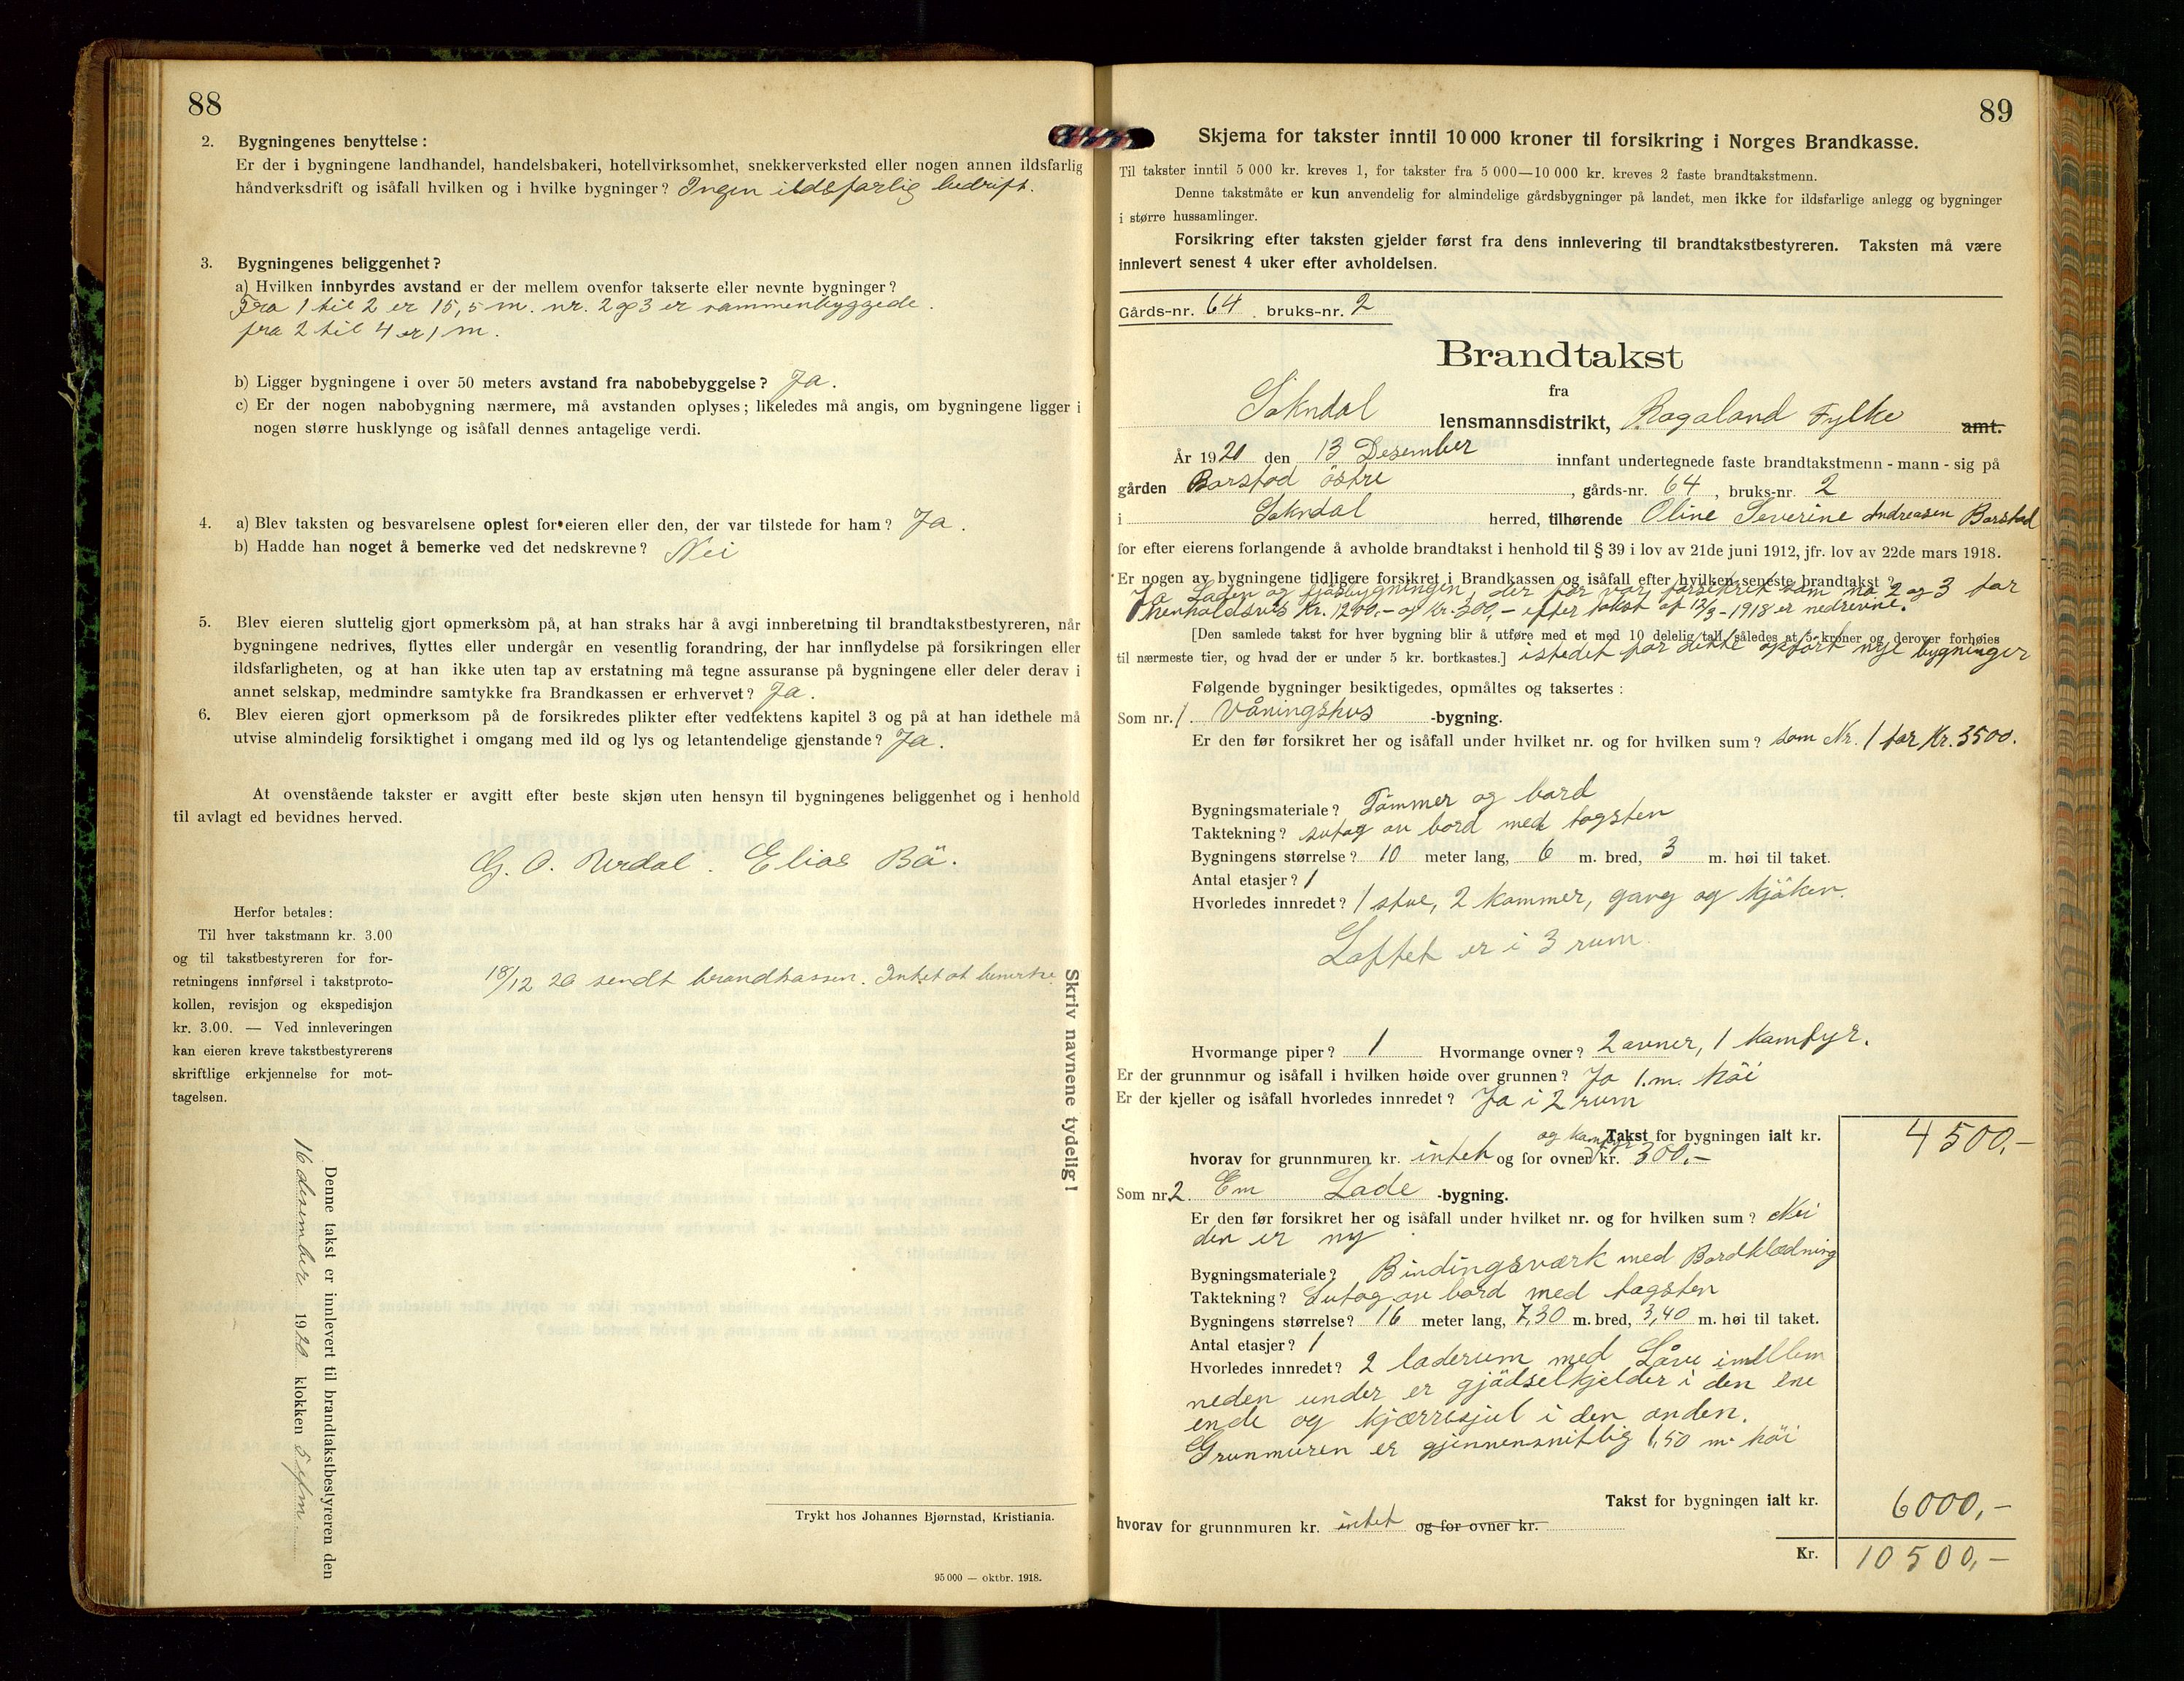 88
2. Bygningenes benyttelse:
Er der i bygningene landhandel, handelsbakeri, hotellvirksomhet, snekkerverksted eller nogen annen ildsfarlig
håndverksdrift og isåfall hvilken og i hvilke bygninger? Ingen ildsfarlig bedrift.
3. Bygningenes beliggenhet?
a) Hvilken innbyrdes avstand er der mellem ovenfor takserte eller nevnte bygninger?
Fra 1 til 2 er 15,5 m. nr. 2 og 3 er sammenbyggede.
fra 2 til 4 er 1 m.
b) Ligger bygningene i over 50 meters avstand fra nabobebyggelse? Ja.
c) Er der nogen nabobygning nærmere, må avstanden oplyses; likeledes må angis, om bygningene ligger i
nogen større husklynge og isåfall dennes antagelige verdi.
4. a) Blev taksten og besvarelsene oplest for eieren eller den, der var tilstede for ham? Ja.
b) Hadde han noget å bemerke ved det nedskrevne? Nei
5. Blev eieren sluttelig gjort opmerksom på, at han straks har å avgi innberetning til brandtakstbestyreren, når
bygningene nedrives, flyttes eller undergår en vesentlig forandring, der har innflydelse på forsikringen eller
ildsfarligheten, og at han ikke uten tap av erstatning må tegne assuranse på bygningene eller deler derav i
annet selskap, medmindre samtykke fra Brandkassen er erhvervet? Ja.
6. Blev eieren gjort opmerksom på de forsikredes plikter efter vedtektens kapitel 3 og på at han idethele må
utvise almindelig forsiktighet i omgang med ild og lys og letantendelige gjenstande? Ja.
At ovenstående takster er avgitt efter beste skjøn uten hensyn til bygningenes beliggenhet og i henhold
til avlagt ed bevidnes herved.
G. O. Urdal. Elias Bö.
Herfor betales:
Til hver takstmann kr. 3.00
og til takstbestyreren for for-
retningens innførsel i takstproto-
kollen, revisjon og ekspedisjon
kr. 3.00. — Ved innleveringen
kan eieren kreve takstbestyrerens
skriftlige erkjennelse for mot-
tagelsen.
18/12 20 sendt brandkassen. Intet at bemerke.
Skriv navnene tydelig!
Denne takst er innlevert til brandtakstbestyreren den
16 desember 1920 klokken 5 efm
Trykt hos Johannes Bjørnstad, Kristiania.
95 000 — oktbr. 1918.
89
Skjema for takster inntil 10 000 kroner til forsikring i Norges Brandkasse.
Til takster inntil 5 000 kr. kreves 1, for takster fra 5 000—10 000 kr. kreves 2 faste brandtakstmenn.
Denne takstmåte er kun anvendelig for almindelige gårdsbygninger på landet, men ikke for ildsfarlige anlegg og bygninger
i større hussamlinger.
Forsikring efter taksten gjelder først fra dens innlevering til brandtakstbestyreren. Taksten må være
innlevert senest 4 uker efter avholdelsen.
Gårds-nr. 64. bruks-nr. 2
Brandtakst
fra
Sokndal lensmannsdistrikt, Rogaland Fylke amt.
År 1920 den 13 Desember innfant undertegnede faste brandtakstmenn - mann - sig på
gården Barstad östre, gårds-nr. 64, bruks-nr. 2
i Sokndal herred, tilhørende Oline Severine Andreasen Barstad
for efter eierens forlangende å avholde brandtakst i henhold til § 39 i lov av 21de juni 1912, jfr. lov av 22de mars 1918.
Er nogen av bygningene tidligere forsikret i Brandkassen og isåfall efter hvilken seneste brandtakst?
Ja Laden og fjösbygningen, der för var forsikret som No 2 og 3 for
henholdsvis Kr. 1200,- og Kr. 300,- efter takst af 12/3-1918 er nedrevne.
[Den samlede takst for hver bygning blir å utføre med et med 10 delelig tall, således at 5 kroner og derover forhøies
til nærmeste tier, og hvad der er under 5 kr. bortkastes.] istedet for dette opfört nye bygninger
Følgende bygninger besiktigedes, opmåltes og taksertes:
Som nr. 1. Våningshus -bygning.
Er den før forsikret her og isåfall under hvilket nr. og for hvilken sum? som Nr. 1 for Kr. 3500.
Bygningsmateriale? Tömmer og bord
Taktekning? sutag av bord med tagsten
Bygningens størrelse? 10 meter lang, 6 m. bred, 3 m. høi til taket.
Antal etasjer? 1
Hvorledes innredet? 1 stue, 2 kammer, gang og kjöken.
Loftet er i 3 rum.
Hvormange piper? 1 Hvormange ovner? 2 ovner, 1 komfyr.
Er der grunnmur og isåfall i hvilken høide over grunnen? Ja 1. m. höi
Er der kjeller og isåfall hvorledes innredet? Ja i 2 rum
Takst for bygningen ialt kr. 4500,-
og komfyr
hvorav for grunnmuren kr. intet og for ovner kr. 300.-
Som nr. 2. Em Lade -bygning.
Er den før forsikret her og isåfall under hvilket nr. og for hvilken sum? Nei
den er ny
Bygningsmateriale? Bindingsværk med Bordklædning
Taktekning? Sutag av bord med tagsten
Bygningens størrelse? 16 meter lang, 7,30 m. bred, 3,40 m. høi til taket.
Antal etasjer? 1
Hvorledes innredet? 2 laderum med Låve imellem
neden under er gjödselkjelder i den ene
ende og kjærresjul i den anden.
Grunmuren er gjennemsnitlig 1,50 m. höi
Takst for bygningen ialt kr. 6000,-
hvorav for grunnmuren kr. intet og for ovner kr.
Kr. 10500,-